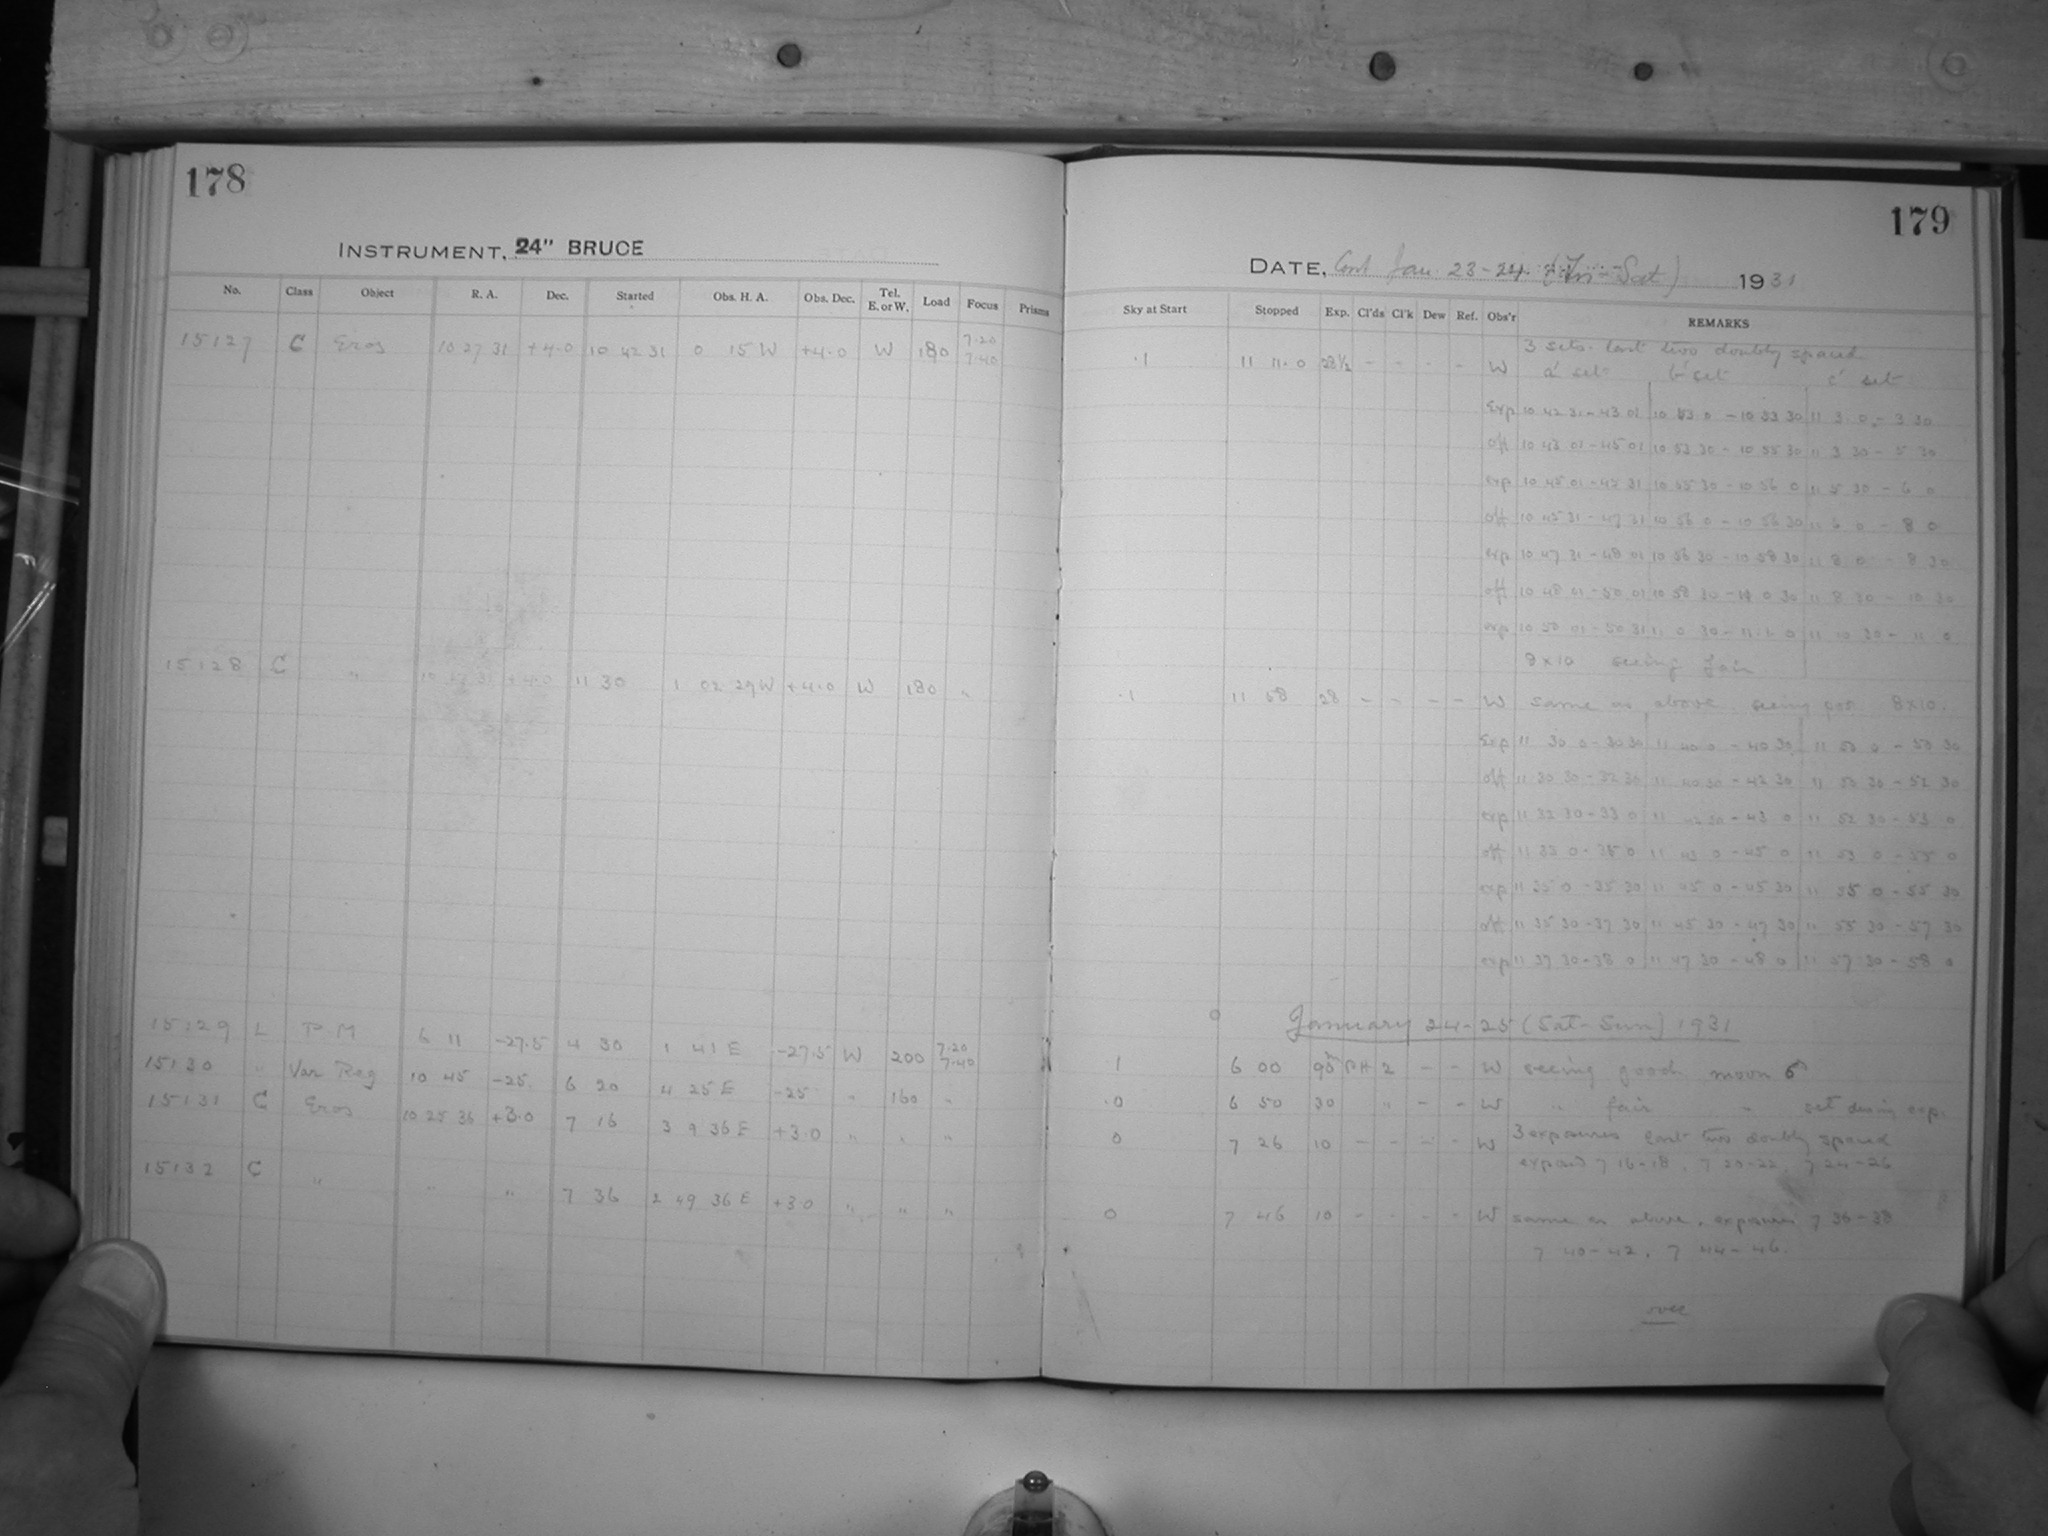 178
INSTRUMENT, 24" BRUCE
No. Class Object R. A. Dec. Started Obs. H. A. Obs. Dec. Tel. E. or W. Load Focus Prisms
15127 C Eros 10 27 31 +4.0 10 42 31 0 15 W +4.0 W 180 7.20 7.40
15128 C " 10 27 31 +4.0 11 30 1 02 29 W +4.0 W 180 "
15129 L P.M 6 11 -27.5 4 30 1 41 E -27.5 W 200 7.20 7.40
15130 " Var Reg 10 45 -25 6 20 4 25 E -25 " 160 "
15131 C Eros 10 25 36 +3.0 7 16 3 9 36 E +3.0 " " "
15132 C " " " 7 36 2 49 36 E +3.0 " " "
179
DATE, Cont Jan. 23-24 (Fri-Sat) 1931
Sky at Start Stopped Exp. Cl'ds Cl'k Dew Ref. Obs'r REMARKS
3 sets. last two doubly spaced
.1 11 11.0 28½ - - - - W a' set b' set c' set
Exp 10 42 31-43 01 10 53 0 - 10 53 30 11 3 0 - 3 30
off 10 43 01-45 01 10 53 30 - 10 55 30 11 3 30 - 5 30
exp 10 45 01-45 31 10 55 30 - 10 56 0 11 5 30 - 6 0
off 10 45 31-47 31 10 56 0 - 10 56 30 11 6 0 - 8 0
exp 10 47 31-48 01 10 56 30 - 10 58 30 11 8 0 - 8 30
off 10 48 01-50 01 10 58 30 - 11 0 30 11 8 30 - 10 30
exp 10 50 01-50 31 11 0 30 - 11 1 0 11 10 30 - 11 0
8×10 seeing fair
.1 11 58 28 - - - - W same as above seeing poor 8×10.
Exp 11 30 0-30 30 11 40 0 - 40 30 11 50 0 - 50 30
off 11 30 30-32 30 11 40 30 - 42 30 11 50 30 - 52 30
exp 11 32 30-33 0 11 42 30 - 43 0 11 52 30 - 53 0
off 11 33 0-35 0 11 43 0 - 45 0 11 53 0 - 55 0
exp 11 35 0-35 30 11 45 0 - 45 30 11 55 0 - 55 30
off 11 35 30-37 30 11 45 30 - 47 30 11 55 30 - 57 30
exp 11 37 30-38 0 11 47 30 - 48 0 11 57 30 - 58 0
January 24-25 (Sat-Sun) 1931
.1 6 00 90 PH 2 - - W seeing good moon 6
.0 6 50 30 " - - W " fair " set during exp.
0 7 26 10 - - - - W 3 exposures last two doubly spaced
exposed 7 16-18, 7 20-22, 7 24-26
0 7 46 10 - - - - W same as above. exposures 7 36-38
7 40-42, 7 44-46.
over